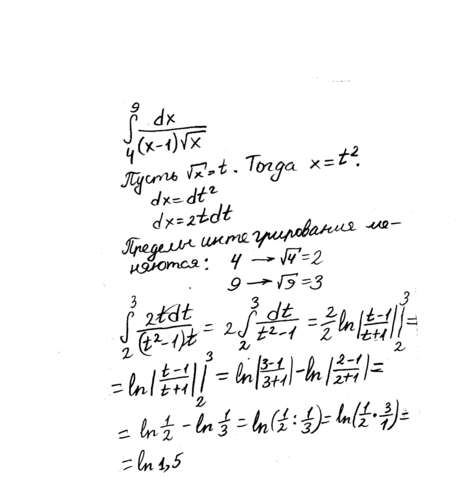 ∫₄⁹ dx/((x-1)√x)
Пусть √x = t. Тогда x = t².
dx = dt²
dx = 2tdt
Пределы интегрирования ме-
няются: 4 → √4 = 2
9 → √9 = 3
∫₂³ 2tdt/((t²-1)t) = 2∫₂³ dt/(t²-1) = 2/2 ln|(t-1)/(t+1)| |₂³ =
= ln|(t-1)/(t+1)| |₂³ = ln|(3-1)/(3+1)| - ln|(2-1)/(2+1)| =
= ln 1/2 - ln 1/3 = ln(1/2 : 1/3) = ln(1/2 · 3/1) =
= ln 1,5